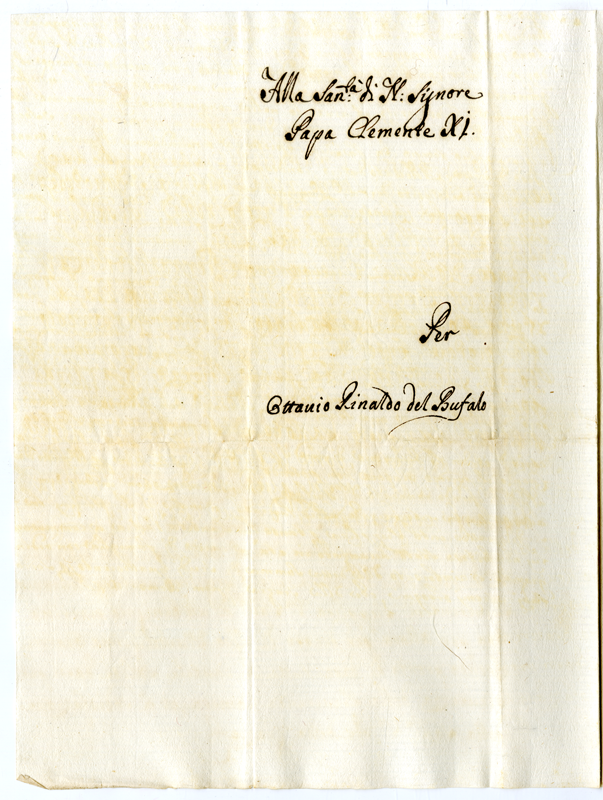 Alla San.tà di N: Signore
Papa Clemente XI.
Per
Ottauio Rinaldo del Bufalo